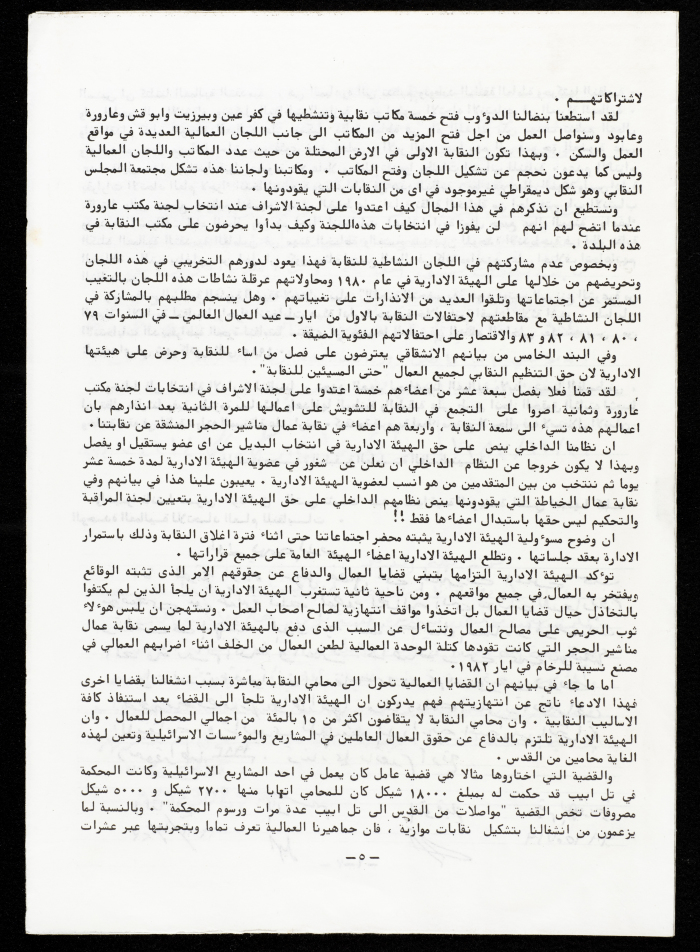 لاشتراكاتهـــم .
لقد استطعنا بنضالنا الدوٴوب فتح خمسة مكاتب نقابية وتنشطيها في كفر عين وبيرزيت وابو قش وعارورة
وعابود وسنواصل العمل من اجل فتح المزيد من المكاتب الى جانب اللجان العمالية العديدة في مواقع
العمل والسكن . وبهذا تكون النقابة الاولى في الارض المحتلة من حيث عدد المكاتب واللجان العمالية
وليس كما يدعون نحجم عن تشكيل اللجان وفتح المكاتب . ومكاتبنا ولجاننا هذه تشكل مجتمعة المجلس
النقابي وهو شكل ديمقراطي غيرموجود في اى من النقابات التي يقودونها .
ونستطيع ان نذكرهم في هذا المجال كيف اعتدوا على لجنة الاشراف عند انتخاب لجنة مكتب عارورة
عندما اتضح لهم انهم لن يفوزا في انتخابات هذهاللجنة وكيف بدأوا يحرضون على مكتب النقابة في
هذه البلدة .
وبخصوص عدم مشاركتهم في اللجان النشاطية للنقابة فهذا يعود لدورهم التخريبي في هذه اللجان
وتحريضهم من خلالها على الهيئة الادارية في عام ١٩٨٠ ومحاولاتهم عرقلة نشاطات هذه اللجان بالتغيب
المستمر عن اجتماعاتها وتلقوا العديد من الانذارات على تغيباتهم . وهل ينسجم مطلبهم بالمشاركة في
اللجان النشاطية مع مقاطعتهم لاحتفالات النقابة بالاول من ايار ــ عيد العمال العالمي ــ في السنوات ٧٩
، ٨٠ ، ٨١ ، ٨٢ و ٨٣ والاقتصار على احتفالاتهم الفئوية الضيقة .
وفي البند الخامس من بيانهم الانشقاقي يعترضون على فصل من اساء للنقابة وحرض على هيئتها
الادارية لان حق التنظيم النقابي لجميع العمال "حتى المسيئين للنقابة".
لقد قمنا فعلا بفصل سبعة عشر من اعضاءهم خمسة اعتدوا على لجنة الاشراف في انتخابات لجنة مكتب
عارورة وثمانية اصروا على التجمع في النقابة للتشويش على اعمالها للمرة الثانية بعد انذارهم بان
اعمالهم هذه تسيء الى سمعة النقابة ، واربعة هم اعضاء في نقابة عمال مناشير الحجر المنشقة عن نقابتنا .
ان نظامنا الداخلي ينص على حق الهيئة الادارية في انتخاب البديل عن اى عضو يستقيل او يفصل
وبهذا لا يكون خروجا عن النظام الداخلي ان نعلن عن شغور في عضوية الهيئة الادارية لمدة خمسة عشر
يوما ثم ننتخب من بين المتقدمين من هو انسب لعضوية الهيئة الادارية . يعيبون علينا هذا في بيانهم وفي
نقابة عمال الخياطة التي يقودونها ينص نظامهم الداخلي على حق الهيئة الادارية بتعيين لجنة المراقبة
والتحكيم ليس حقها باستبدال اعضاءها فقط !!
ان وضوح مسوٴولية الهيئة الادارية يثبته محضر اجتماعاتنا حتى اثناء فترة اغلاق النقابة وذلك باستمرار
الادارة بعقد جلساتها . وتطلع الهيئة الادارية اعضاء الهيئة العامة على جميع قراراتها .
توٴكد الهيئة الادارية التزامها بتبني قضايا العمال والدفاع عن حقوقهم الامر الذى تثبته الوقائع
ويفتخر به العمال في جميع مواقعهم . ومن ناحية ثانية تستغرب الهيئة الادارية ان يلجأ الذين لم يكتفوا
بالتخاذل حيال قضايا العمال بل اتخذوا مواقف انتهازية لصالح اصحاب العمل . ونستهجن ان يلبس هوٴلاء
ثوب الحريص على مصالح العمال ونتساءل عن السبب الذى دفع بالهيئة الادارية لما يسمى نقابة عمال
مناشير الحجر التي كانت تقودها كتلة الوحدة العمالية لطعن العمال من الخلف اثناء اضرابهم العمالي في
مصنع نسيبة للرخام في ايار ١٩٨٢.
اما ما جاء في بيانهم ان القضايا العمالية تحول الى محامي النقابة مباشرة بسبب انشغالنا بقضايا اخرى
فهذا الادعاء ناتج عن انتهازيتهم فهم يدركون ان الهيئة الادارية تلجأ الى القضاء بعد استنفاذ كافة
الاساليب النقابية . وان محامي النقابة لا يتقاضون اكثر من ١٥ بالمئة من اجمالي المحصل للعمال . وان
الهيئة الادارية تلتزم بالدفاع عن حقوق العمال العاملين في المشاريع والموٴسسات الاسرائيلية وتعين لهذه
الغاية محامين من القدس .
والقضية التي اختاروها مثالا هي قضية عامل كان يعمل في احد المشاريع الاسرائيلية وكانت المحكمة
في تل ابيب قد حكمت له بمبلغ ١٨٠٠٠ شيكل كان للمحامي اتهابا منها ٢٧٠٠ شيكل و ٥٠٠٠ شيكل
مصروفات تخص القضية "مواصلات من القدس الى تل ابيب عدة مرات ورسوم المحكمة" . وبالنسبة لما
يزعمون من انشغالنا بتشكيل نقابات موازية ، فان جماهيرنا العمالية تعرف تماما وبتجربتها عبر عشرات
ــ ٥ ــ